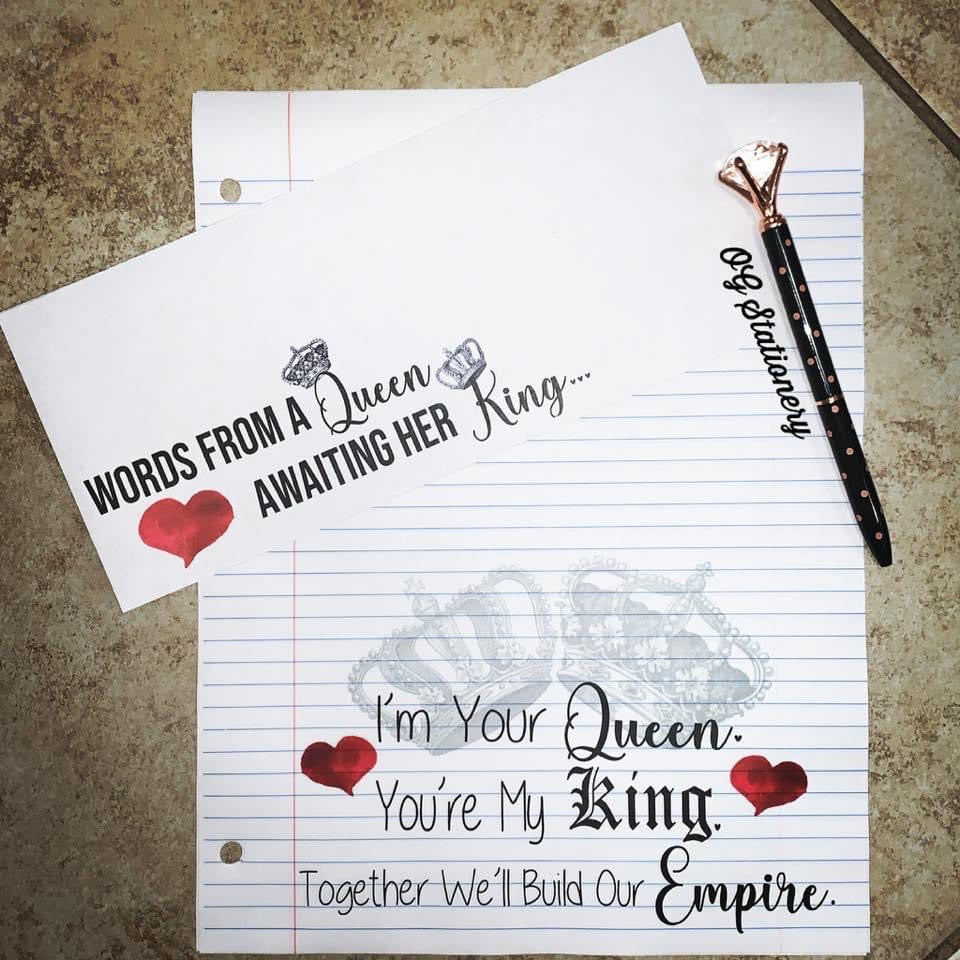 WORDS FROM A Queen
AWAITING HER King...
OG Stationery
I'm Your Queen.
You're My King.
Together We'll Build Our Empire.